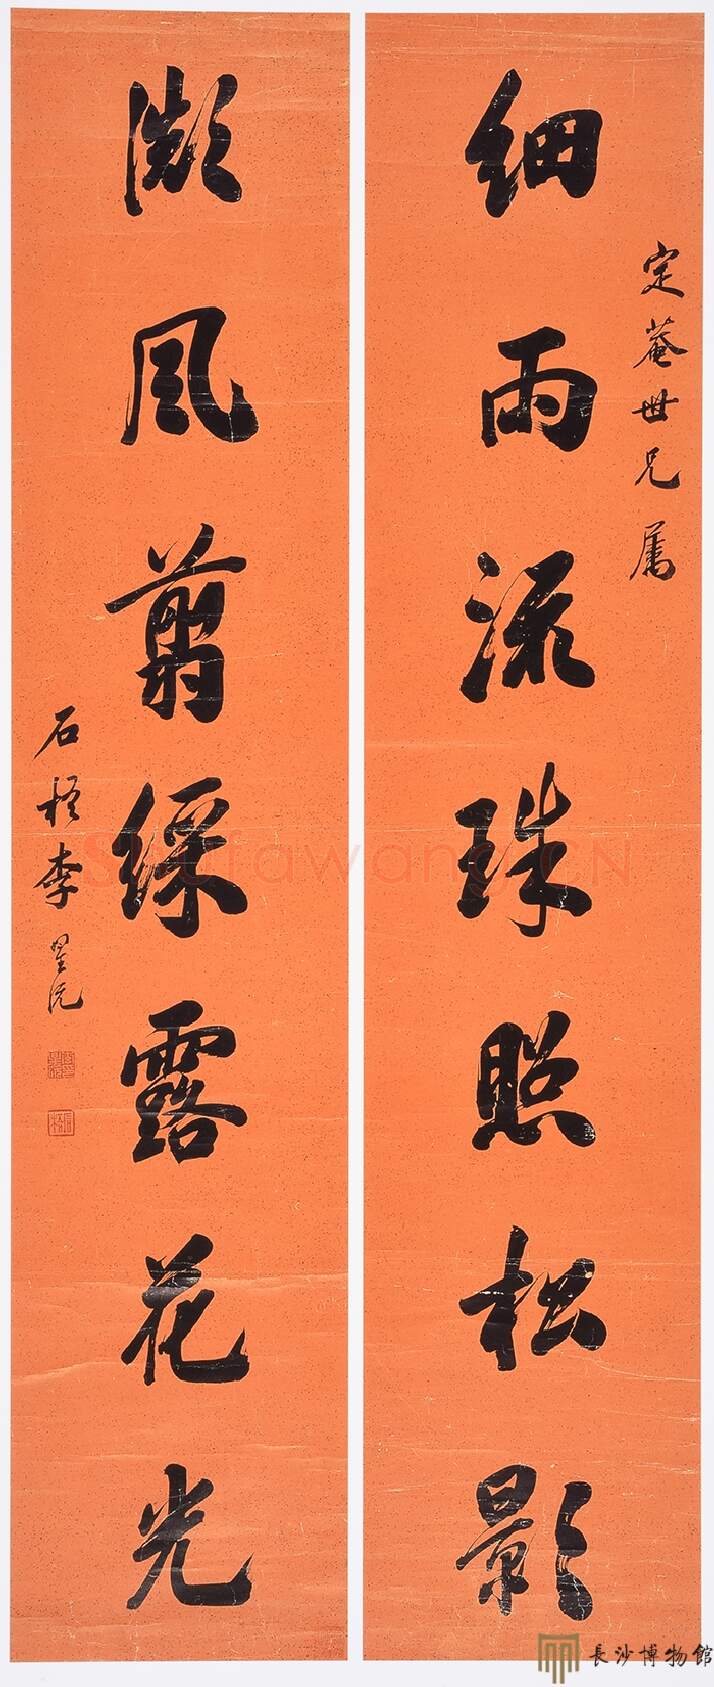 定菴世兄属
細雨流珠照松影
微風翦綵露花光
石梧李星沅
Shufawang.CN
長沙博物館